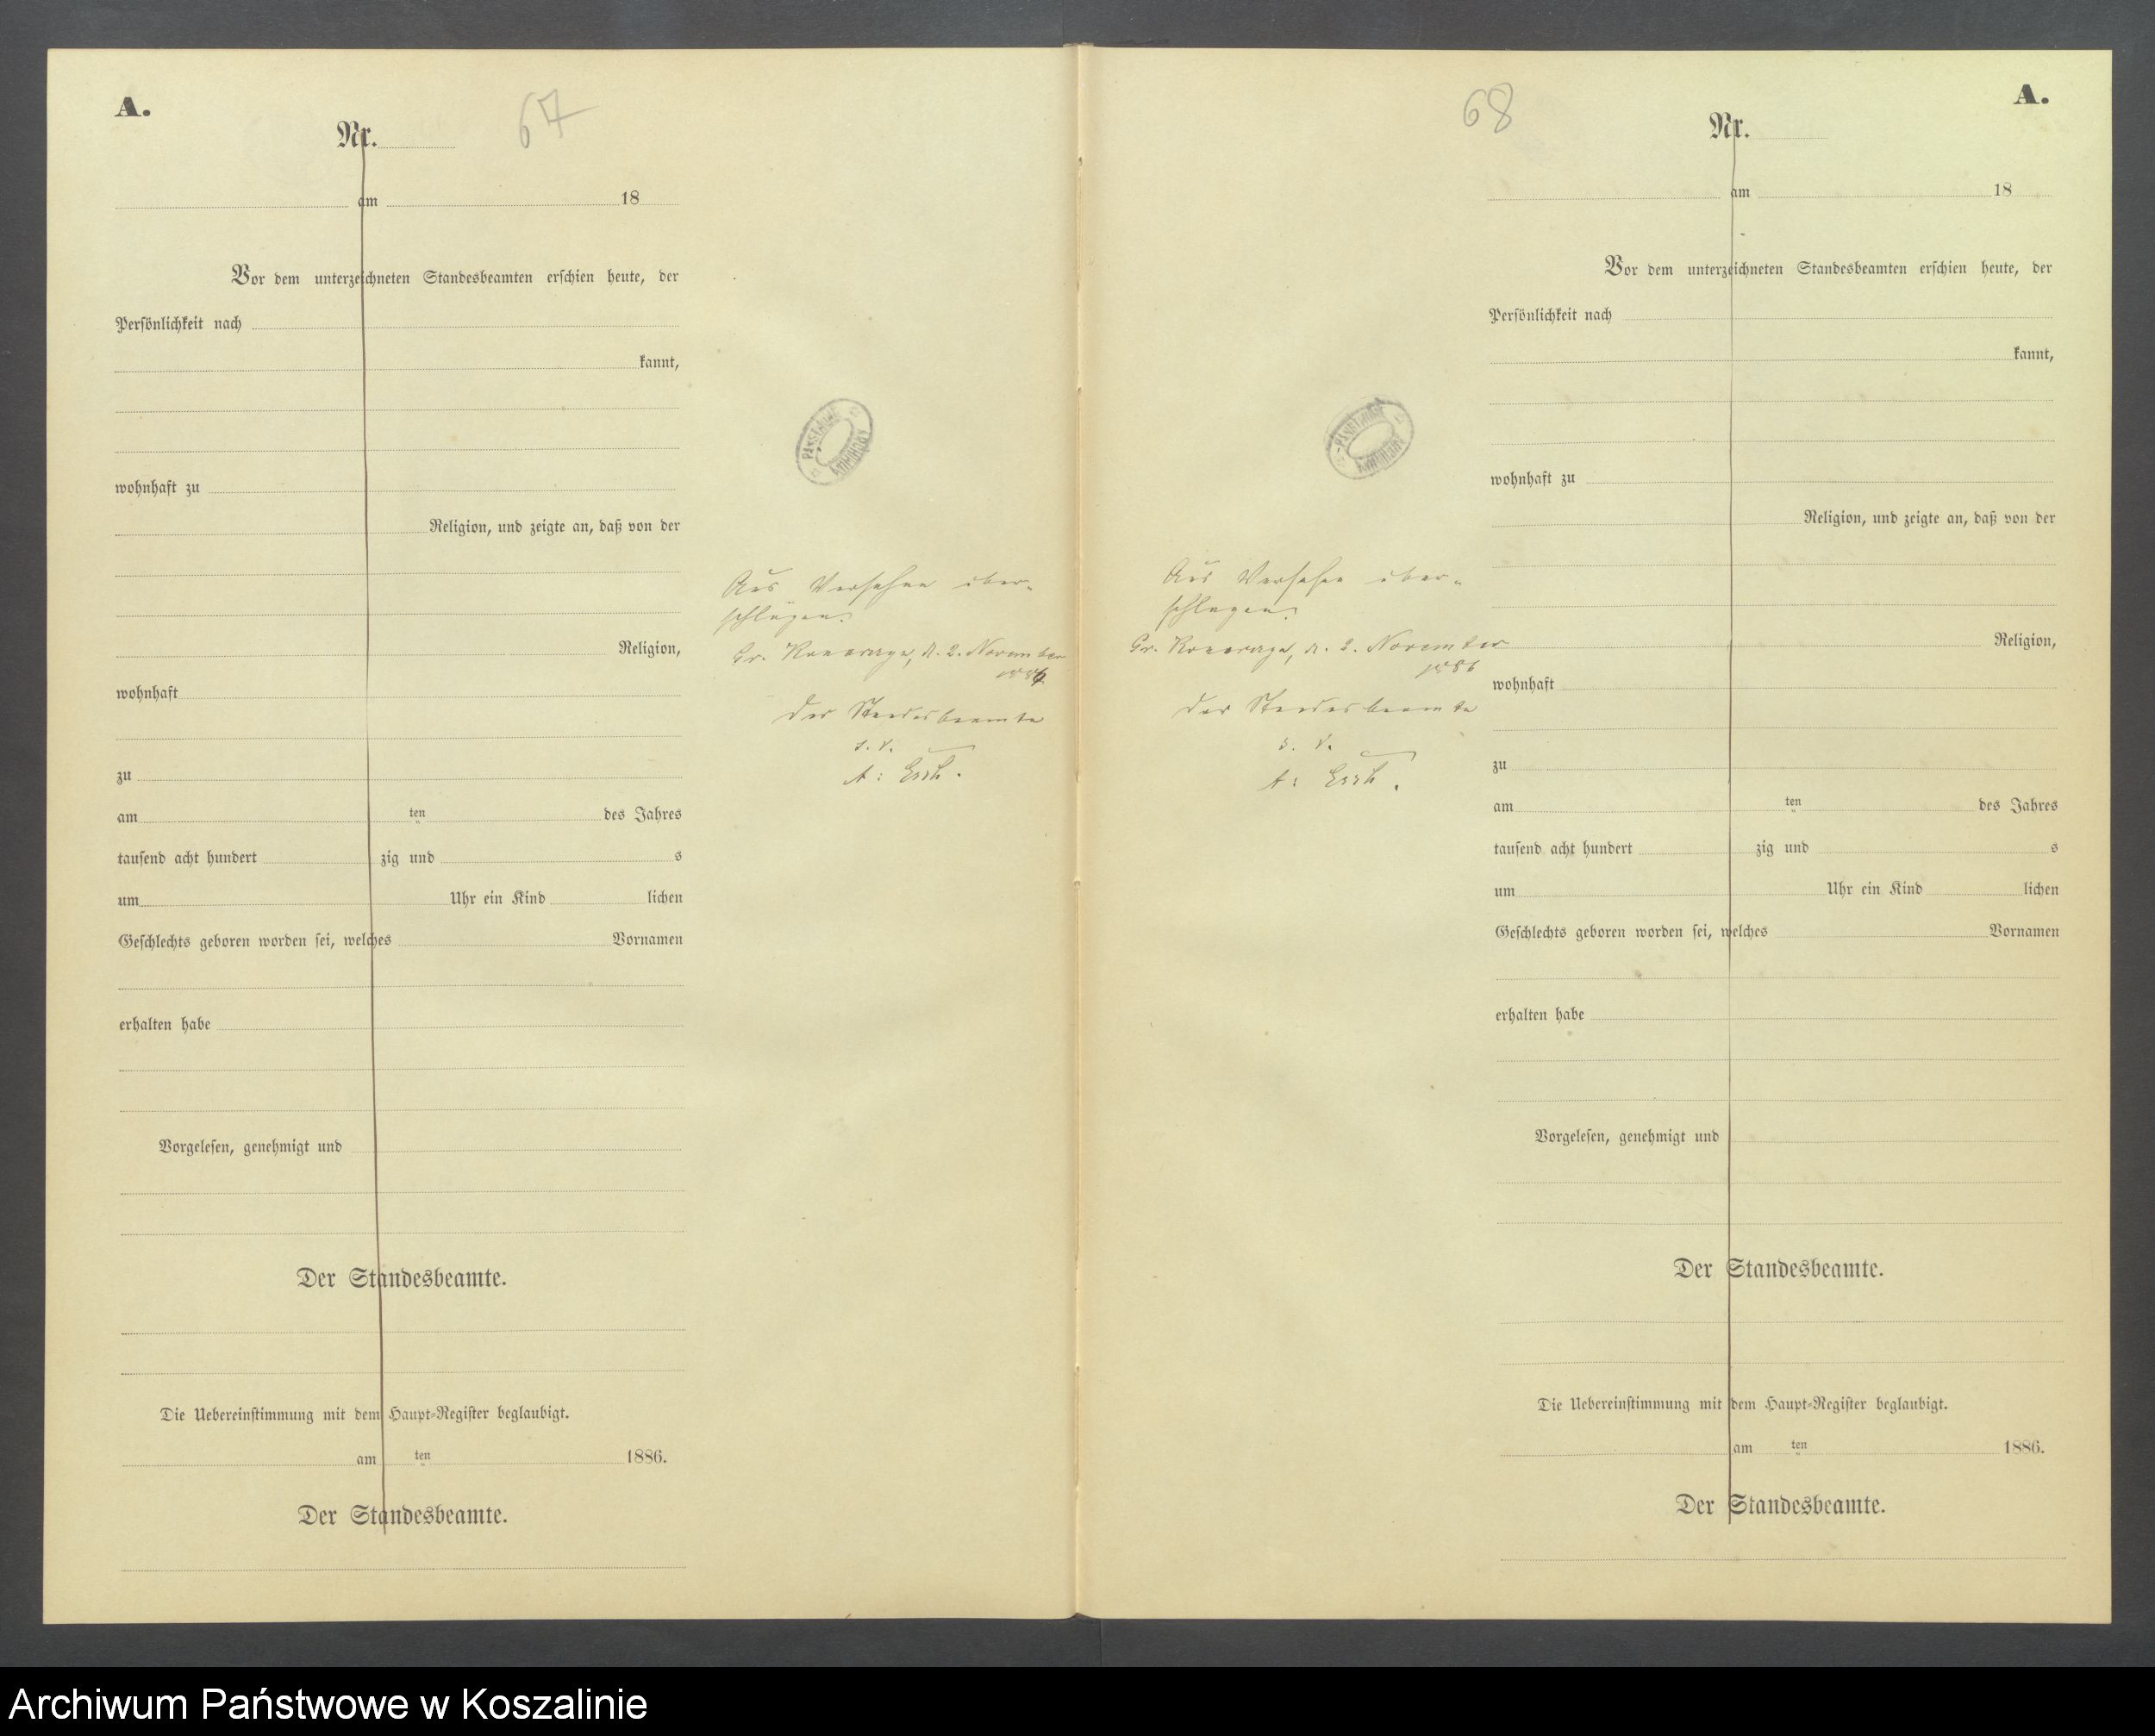 A.
Nr.
67
am 18
Vor dem unterzeichneten Standesbeamten erschien heute, der
Persönlichkeit nach
kannt,
wohnhaft zu
Religion, und zeigte an, daß von der
Religion,
wohnhaft
zu
am ten des Jahres
tausend acht hundert zig und s
um Uhr ein Kind lichen
Geschlechts geboren worden sei, welches Vornamen
erhalten habe
Vorgelesen, genehmigt und
Der Standesbeamte.
Die Uebereinstimmung mit dem Haupt-Register beglaubigt.
am ten 1886.
Der Standesbeamte.
PAŃSTWOWE
ARCHIWUM
Aus Versehen über-
schlagen.
Gr. d. 2. November
1886
Der Standesbeamte
68
A.
Nr.
am 18
Vor dem unterzeichneten Standesbeamten erschien heute, der
Persönlichkeit nach
kannt,
wohnhaft zu
Religion, und zeigte an, daß von der
Religion,
wohnhaft
zu
am ten des Jahres
tausend acht hundert zig und s
um Uhr ein Kind lichen
Geschlechts geboren worden sei, welches Vornamen
erhalten habe
Vorgelesen, genehmigt und
Der Standesbeamte.
Die Uebereinstimmung mit dem Haupt-Register beglaubigt.
am ten 1886.
Der Standesbeamte.
PAŃSTWOWE
ARCHIWUM
Aus Versehen über-
schlagen.
Gr. d. 2. November
1886
Der Standesbeamte
Archiwum Państwowe w Koszalinie